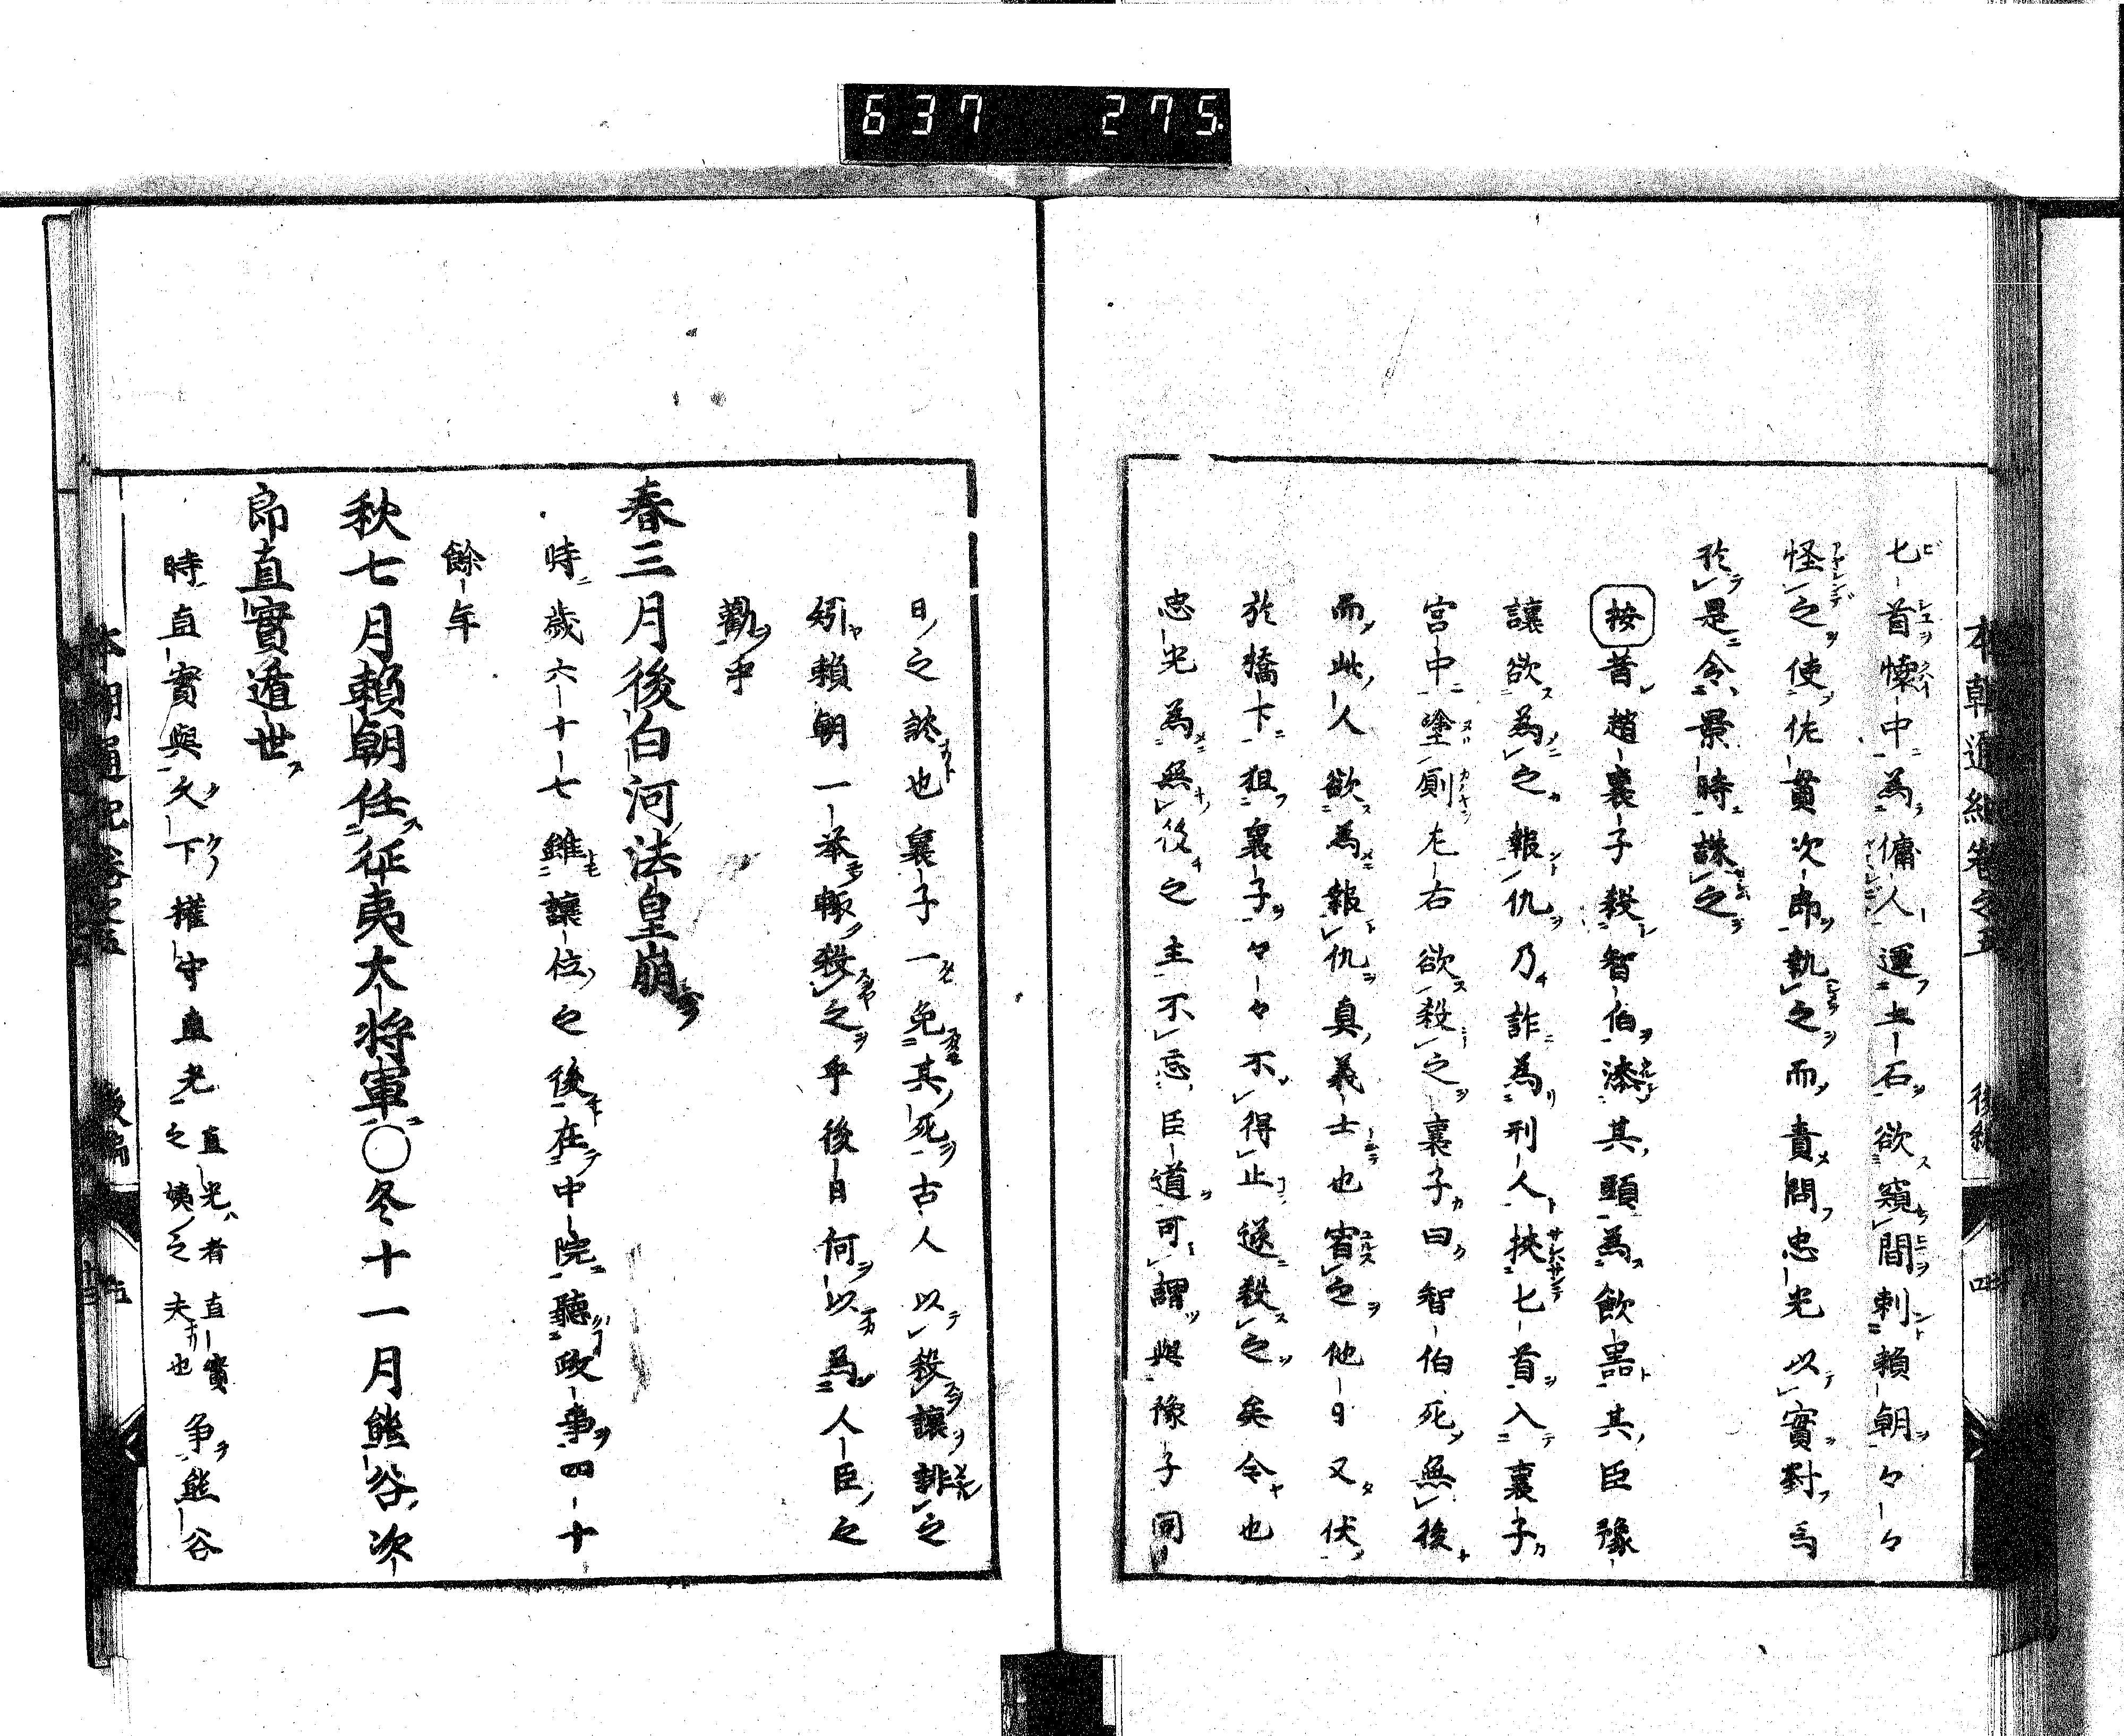 637 275
本朝通紀卷之五 後編
匕首懷中為傭人運土石欲窺間刺賴朝々々
怪之使佐貫次郎執之而責問忠光以實對焉
於是令景時誅之
按昔趙襄子殺智伯漆其頭為飲器其臣豫
讓欲為之報仇乃詐為刑人挾匕首入襄子
宮中塗厠左右欲殺之襄子曰智伯死無後
而此人欲為報仇真義士也宥之他日又伏
於橋下狙襄子々々不得止遂殺之矣今也
忠光為無後之主不忘臣道可謂與豫子同
日之談也襄子一免其死古人以殺讓誹之
矧賴朝一舉輙殺之乎後日何以為人臣之
勸乎
春三月後白河法皇崩
時歲六十七雖讓位之後在中院聽政事四十
餘年
秋七月賴朝任征夷大将軍〇冬十一月熊谷次
郎直實遁世
時直實與久下權守直光直光者直實之姨之夫也争熊谷
本朝通紀卷之五 後編